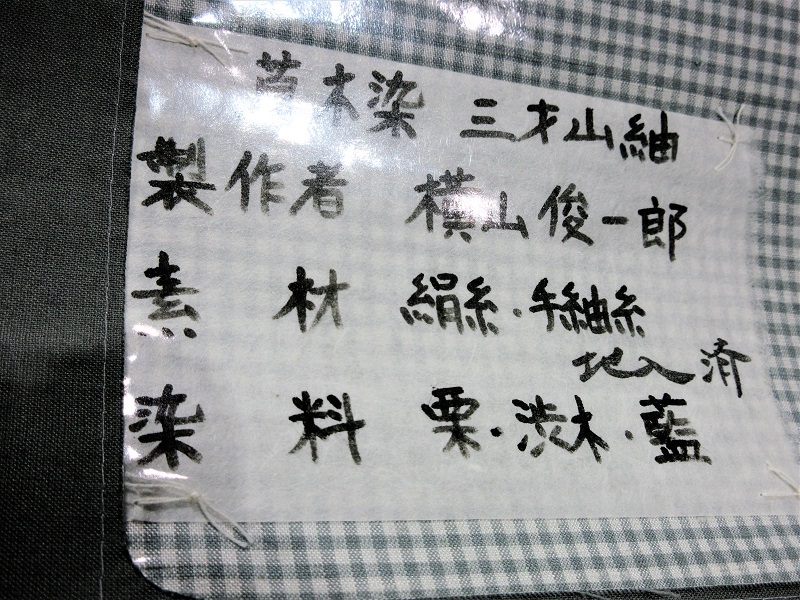 草木染 三才山紬
製作者 横山俊一郎
素材 絹糸・手紬糸
地入済
染料 栗・渋木・藍